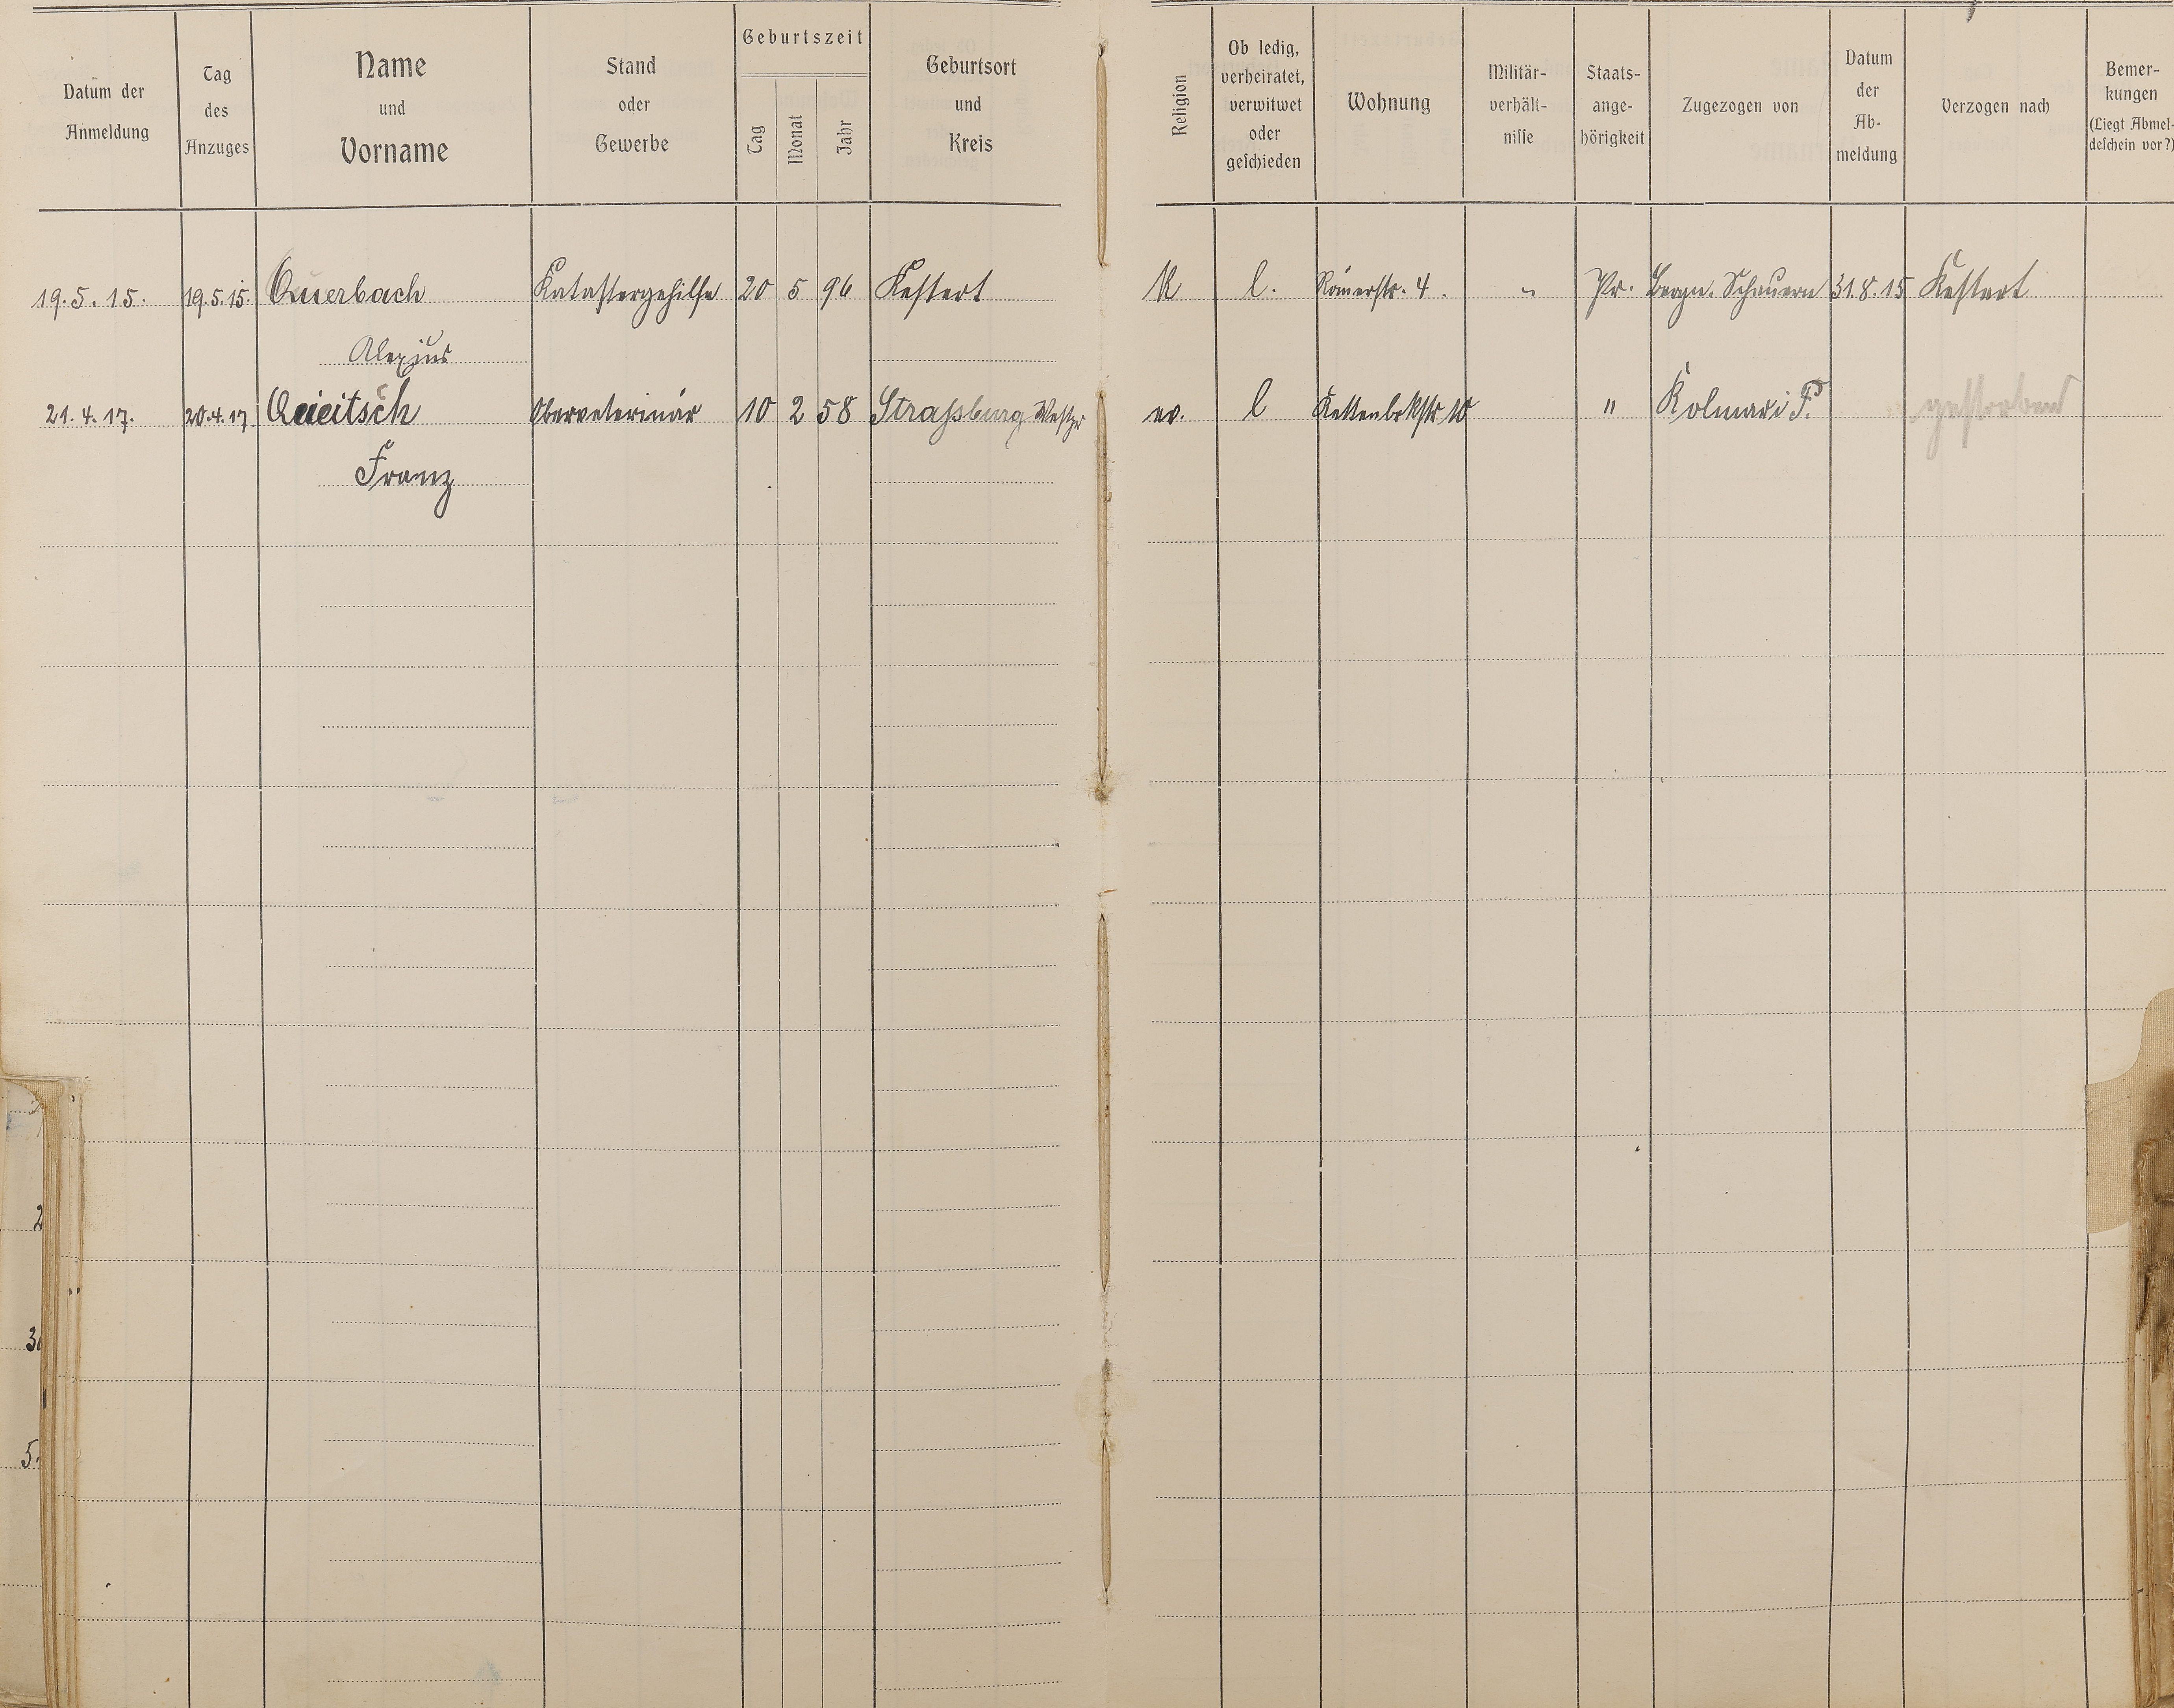 Datum der Anmeldung
Tag des Anzuges
Name und Vorname
Stand oder Gewerbe
Geburtszeit
Tag
Monat
Jahr
Geburtsort und Kreis
Religion
Ob ledig, verheiratet, verwitwet oder geschieden
Wohnung
Militär-verhält-nisse
Staats-ange-hörigkeit
Zugezogen von
Datum der Ab-meldung
Verzogen nach
Bemer-kungen (Liegt Abmel-deschein vor?)
19.5.15. 19.5.15. Querbach Katastergehilfe 20 5 96 Kestert K l. Römerstr. 4. " Pr. Bergn. Scheuern 31.8.15 Kestert
Alexius
21.4.17. 20.4.17 Queitsch Oberveterinär 10 2 58 Strassburg Westpr ev. l 10 " Kolmar i P. gestorben
Franz
2
5.